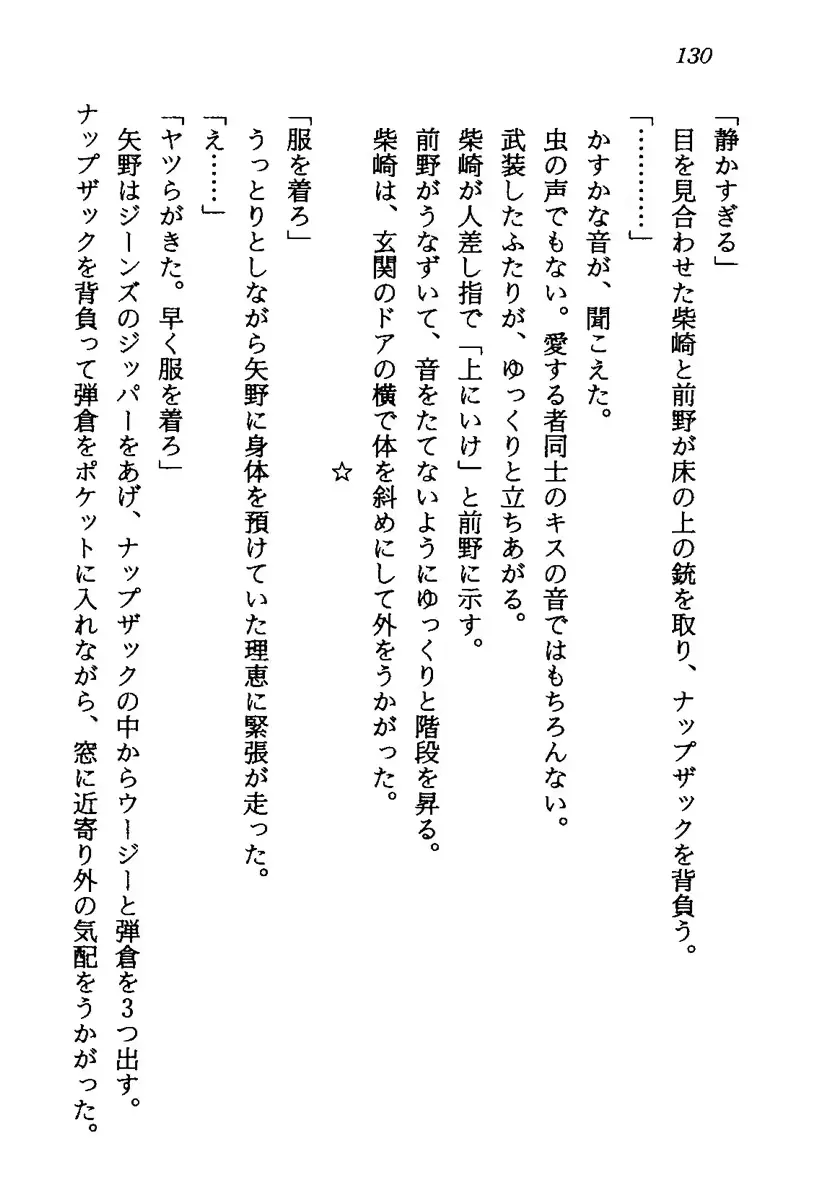 130
「静かすぎる」
目を見合わせた柴崎と前野が床の上の銃を取り、ナップザックを背負う。
「…………」
かすかな音が、聞こえた。
虫の声でもない。愛する者同士のキスの音ではもちろんない。
武装したふたりが、ゆっくりと立ちあがる。
柴崎が人差し指で「上にいけ」と前野に示す。
前野がうなずいて、音をたてないようにゆっくりと階段を昇る。
柴崎は、玄関のドアの横で体を斜めにして外をうかがった。
☆
「服を着ろ」
うっとりとしながら矢野に身体を預けていた理恵に緊張が走った。
「え……」
「ヤツらがきた。早く服を着ろ」
矢野はジーンズのジッパーをあげ、ナップザックの中からウージーと弾倉を3つ出す。
ナップザックを背負って弾倉をポケットに入れながら、窓に近寄り外の気配をうかがった。